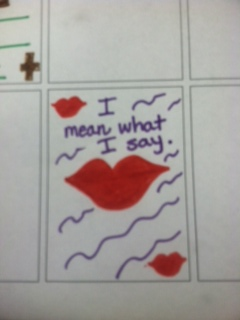 I
mean what
I say.